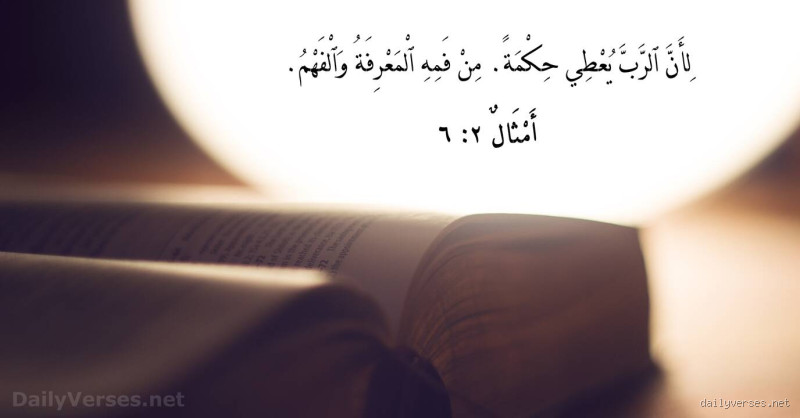 لِأَنَّ ٱلرَّبَّ يُعْطِي حِكْمَةً. مِنْ فَمِهِ ٱلْمَعْرِفَةُ وَٱلْفَهْمُ.
أَمْثَالٌ ٢: ٦
DailyVerses.net
dailyverses.net